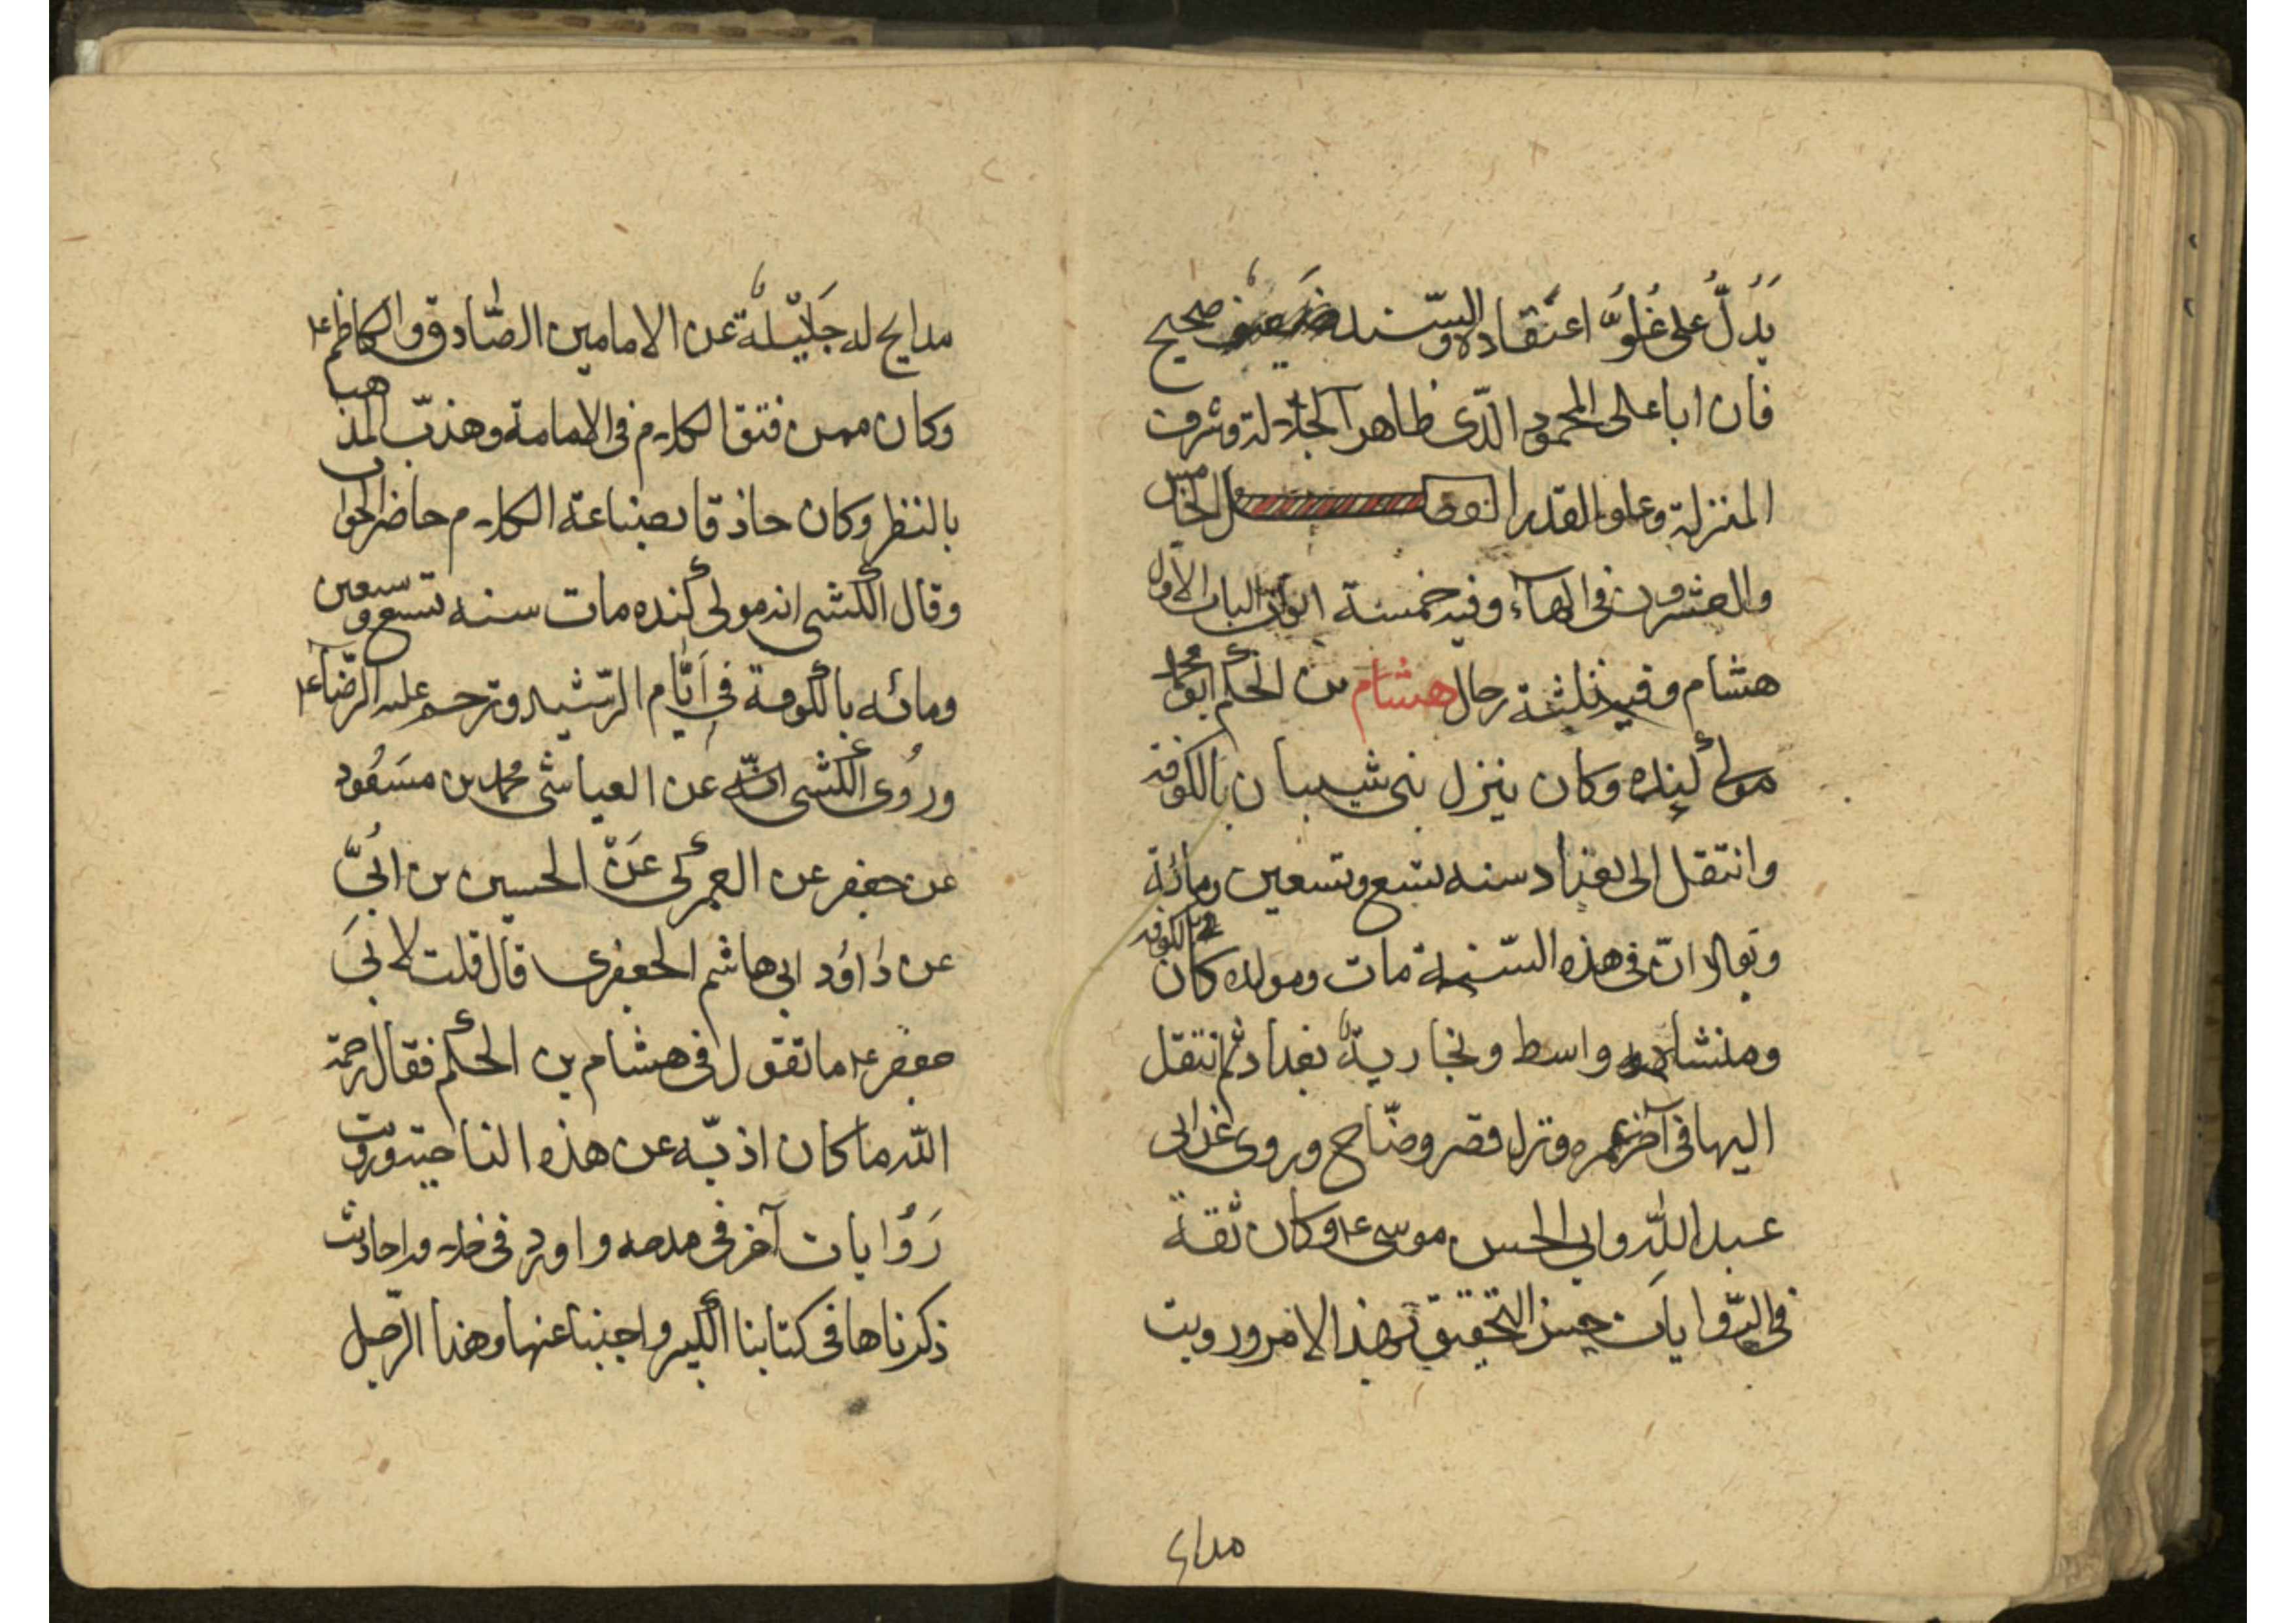 يَدُلُّ على غُلُوِّ اعتقاده والسّند ضعيف صحيح
فان ابا على المحمودى الذّى ظاهر الجلالة وشرف
المنزلة وعلو القدر الفصل الخامس
والعشرون فى الهآء وفيه خمسة ابواب الباب الاول
هشام وفيه ثلثة رجال هشام بن الحكم ابو محمد
مولى كنده وكان ينزل بنى شيبان بالكوفة
وانتقل الى بغداد سنه تسع وتسعين ومائة
ويقال انّ فى هذه السّنة مات ومولده كان بالكوفه
ومنشاه واسط وتجارته بغداد ثم انتقل
اليها فى آخر عمره ونزل قصر وضّاح وروى عن ابى
عبد الله وابى الحسن موسى ع وكان ثقة
فى الرّوايات حسن التحقيق بهذا الامر ورويت
مدايح
مدايح له جَلِيْلَةٌ عن الامامين الصّادق والكاظم ع
وكان ممن فتق الكلام فى الامامة وهذّب المذهب
بالنظر وكان حاذقا بصناعة الكلام حاضر الجواب
وقال الكشى انه مولى كنده مات سنه تسع وسبعين
ومائه بالكوفة فى اَيّام الرّشيد وترحم عليه الرّضا ع
وروى الكشى عن العياشى محمد بن مسعود
عن جعفر عن العمركى عن الحسين بن ابى
عن داود ابى هاشم الجعفرى قال قلت لابى
جعفر ع ما تقول فى هشام بن الحكم فقال رحمه
الله ما كان اذبّه عن هذه الناحيته ورويت
رَوُايات آخر فى مدحه واورد فى خلافه احاديث
ذكرناها فى كتابنا الكبير واجبنا عنها وهذا الرّجل